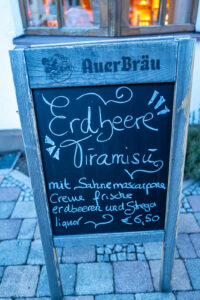 AuerBräu
Erdbeere
Tiramisu
mit Sahnemascarpone
Creme frische
erdbeeren und Strega
liquor € 6,50